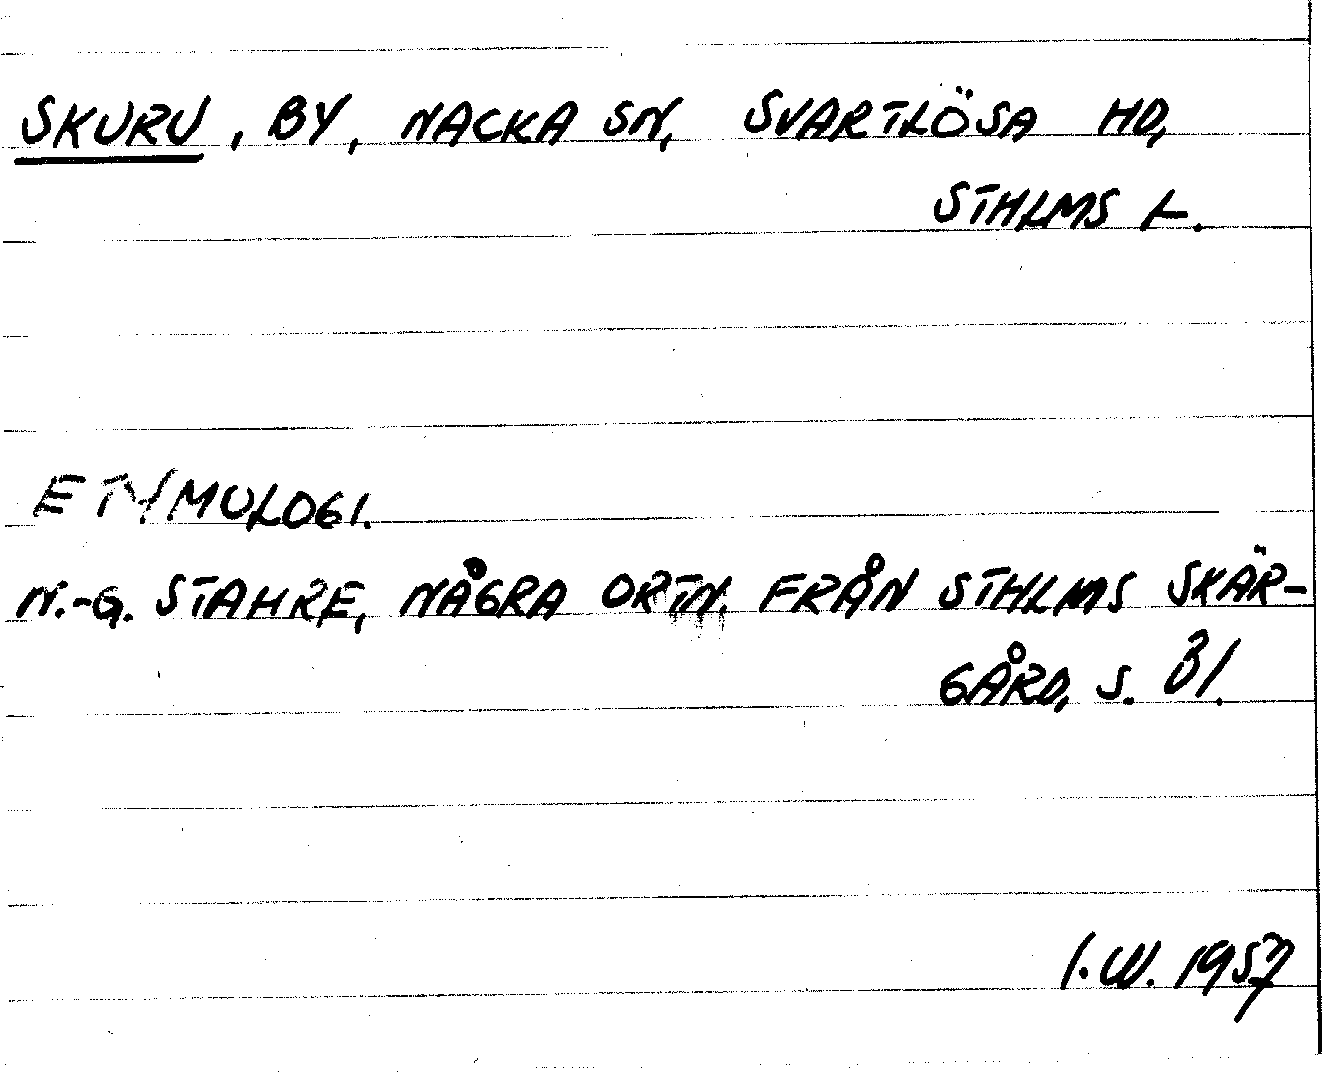 SKURU, BY, NACKA SN, SVARTLÖSA HD,
STHLMS L.
ETYMOLOGI.
N.-G. STAHRE, NÅGRA ORTN. FRÅN STHLMS SKÄR-
GÅRD, S. 31.
I.W. 1957